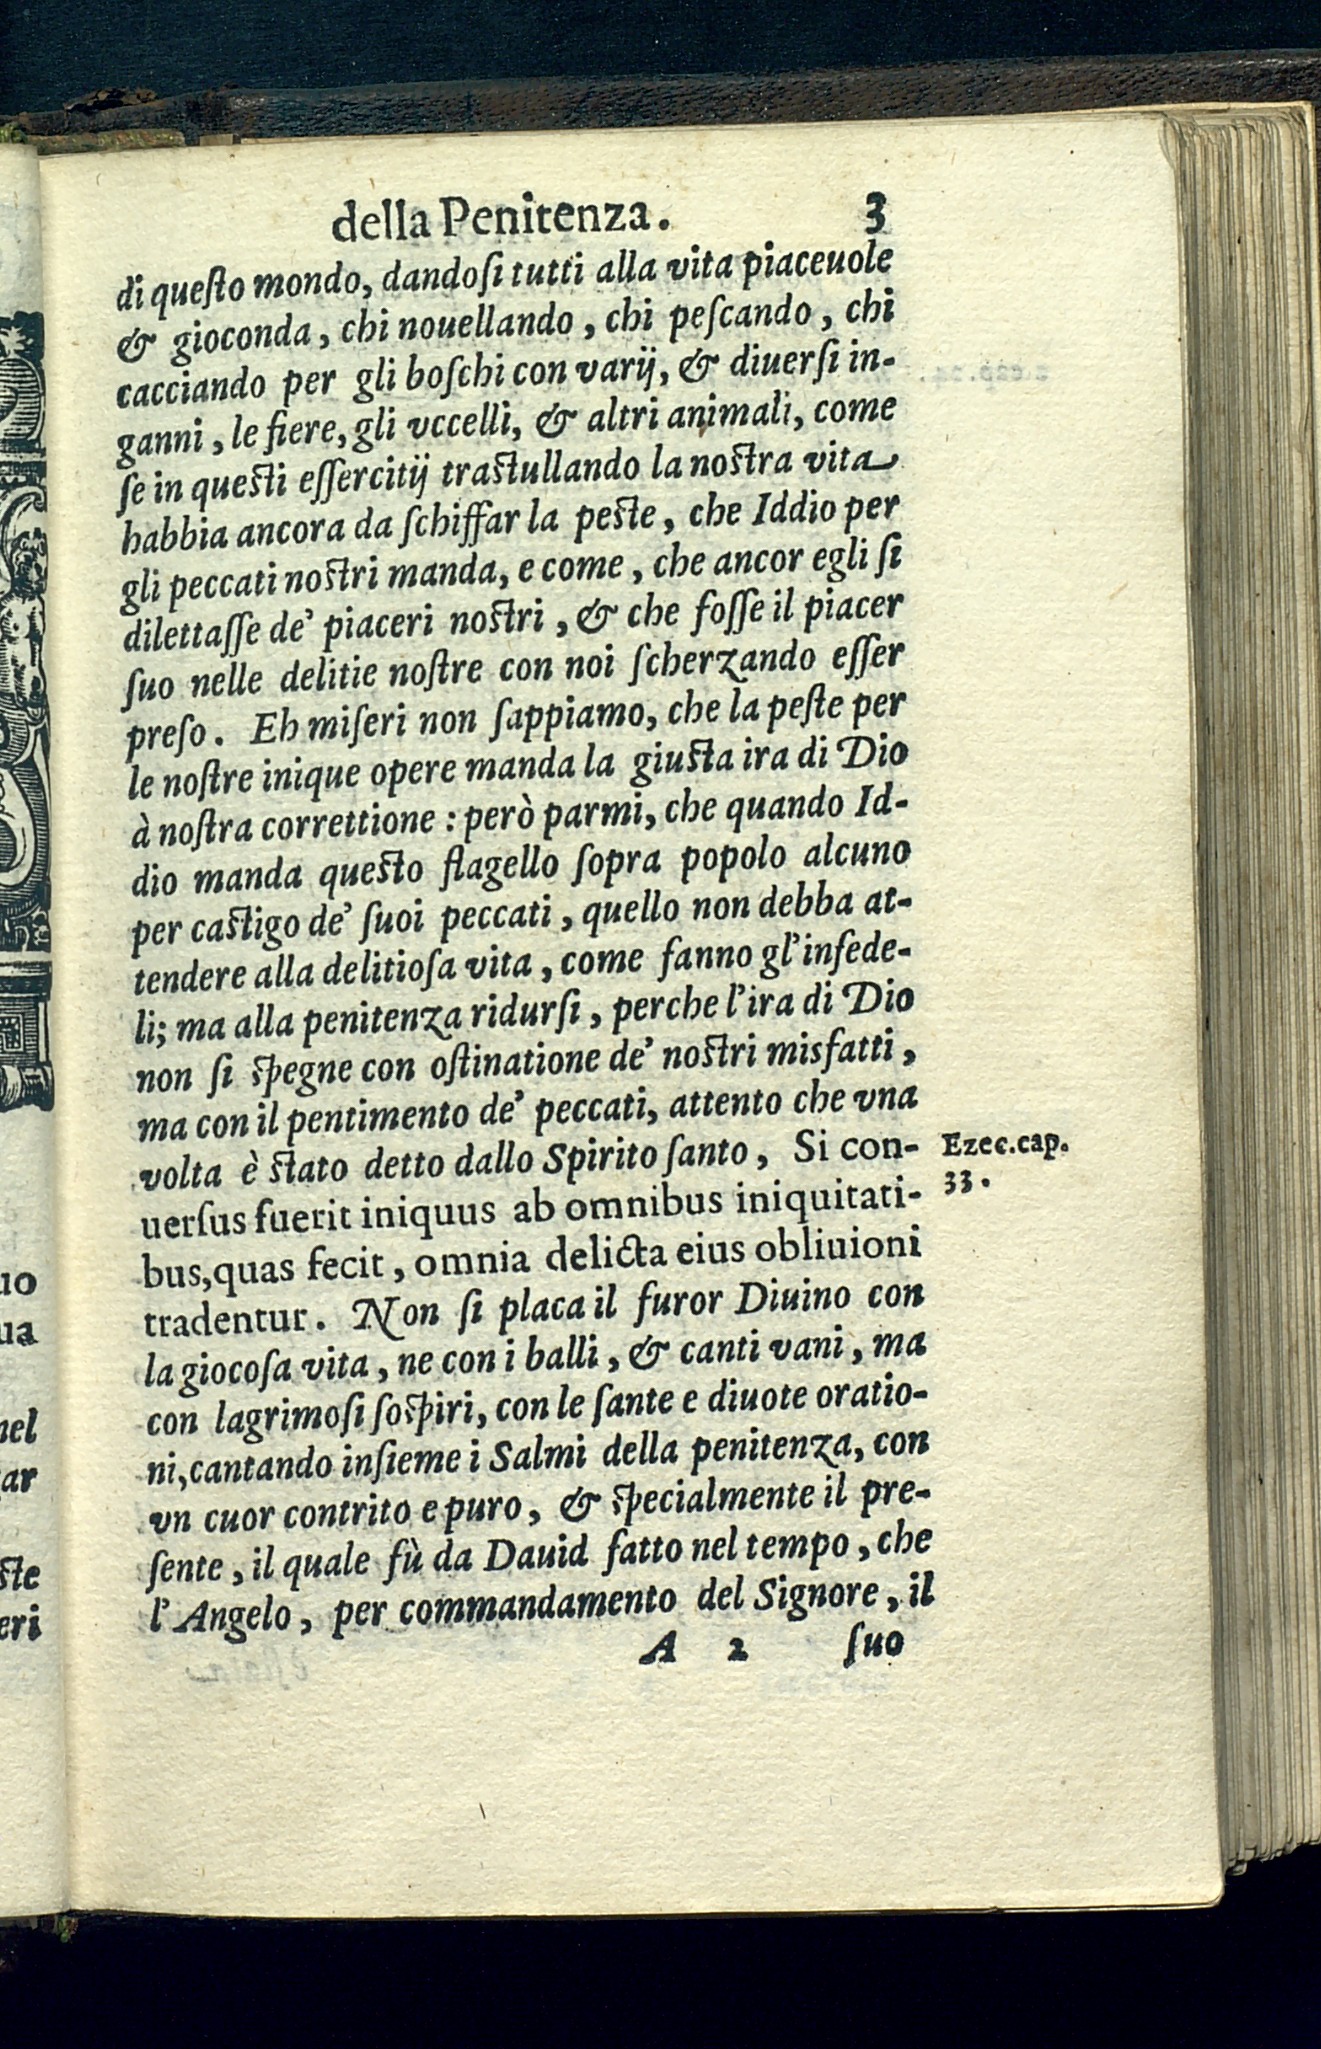 della Penitenza. 3
di queſto mondo, dandoſi tutti alla vita piaceuole
& gioconda, chi nouellando, chi peſcando, chi
cacciando per gli boſchi con varij, & diuerſi in-
ganni, le fiere, gli vccelli, & altri animali, come
ſe in queſti eſſercitij traſtullando la noſtra vita
habbia ancora da ſchiffar la peſte, che Iddio per
gli peccati noſtri manda, e come, che ancor egli ſi
dilettaſſe de' piaceri noſtri, & che foſſe il piacer
ſuo nelle delitie noſtre con noi ſcherzando eſſer
preſo. Eh miſeri non ſappiamo, che la peſte per
le noſtre inique opere manda la giuſta ira di Dio
à noſtra correttione: però parmi, che quando Id-
dio manda queſto flagello ſopra popolo alcuno
per caſtigo de' ſuoi peccati, quello non debba at-
tendere alla delitioſa vita, come fanno gl'infede-
li; ma alla penitenza ridurſi, perche l'ira di Dio
non ſi ſpegne con oſtinatione de' noſtri misfatti,
ma con il pentimento de' peccati, attento che vna
volta è ſtato detto dallo Spirito ſanto, Si con-
uerſus fuerit iniquus ab omnibus iniquitati-
bus, quas fecit, omnia delicta eius obliuioni
tradentur. Non ſi placa il furor Diuino con
la giocoſa vita, ne con i balli, & canti vani, ma
con lagrimoſi ſoſpiri, con le ſante e diuote oratio-
ni, cantando inſieme i Salmi della penitenza, con
vn cuor contrito e puro, & ſpecialmente il pre-
ſente, il quale fù da Dauid fatto nel tempo, che
l'Angelo, per commandamento del Signore, il
A 2 ſuo
Ezec. cap.
33.
uo
ua
nel
ar
ſte
eri